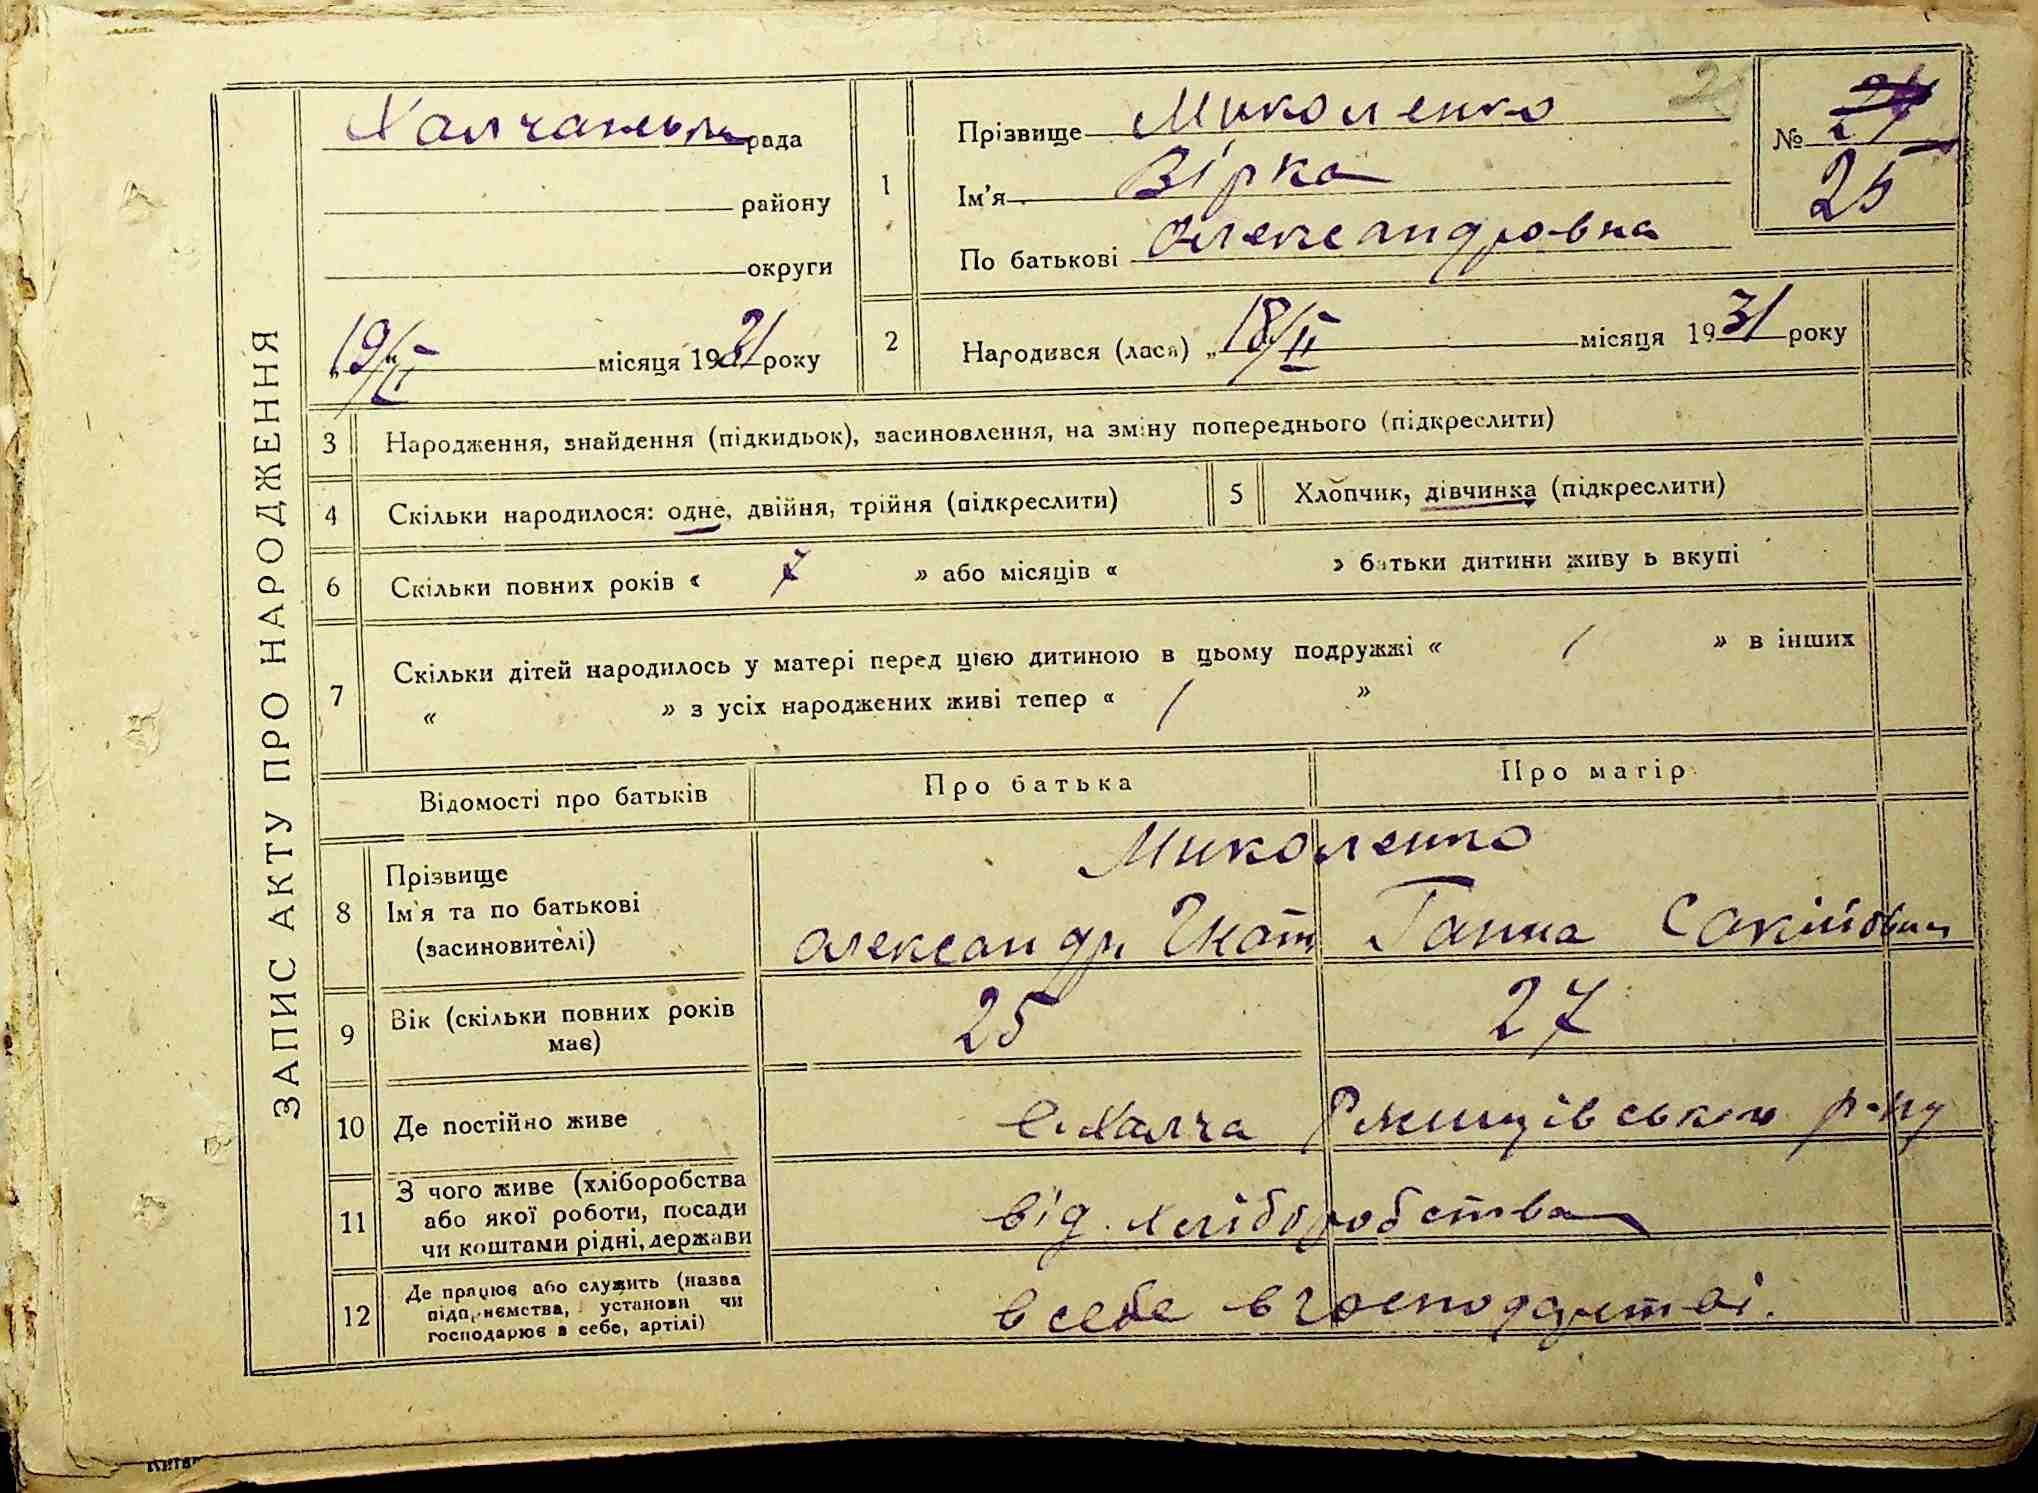 ЗАПИС АКТУ ПРО НАРОДЖЕННЯ
Халчанська рада
району
округи
„19/II місяця 1931 року
1
Прізвище Миколенко
Ім'я Вірка
По батькові Олександровна
№ 24
25
2 Народився (лася) „18/II місяця 1931 року
3 Народження, знайдення (підкидьок), засиновлення, на зміну попереднього (підкреслити)
4 Скільки народилося: одне, двійня, трійня (підкреслити)
5 Хлопчик, дівчинка (підкреслити)
6 Скільки повних років « 7 » або місяців « » батьки дитини живуть вкупі
7 Скільки дітей народилось у матері перед цією дитиною в цьому подружжі « 1 » в інших
« » з усіх народжених живі тепер « 1 »
Відомості про батьків
Про батька
Про матір
8 Прізвище
Ім'я та по батькові
(засиновителі)
Миколенко
Олександр Гнат
Ганна Сакійовна
9 Вік (скільки повних років
має)
25
27
10 Де постійно живе
с. Халча Ржищівського р-ну
11 З чого живе (хліборобства
або якої роботи, посади
чи коштами рідні, держави
від хліборобства
12 Де працює або служить (назва
підприємства, установи чи
господарює в себе, артілі)
в себе в господарстві.